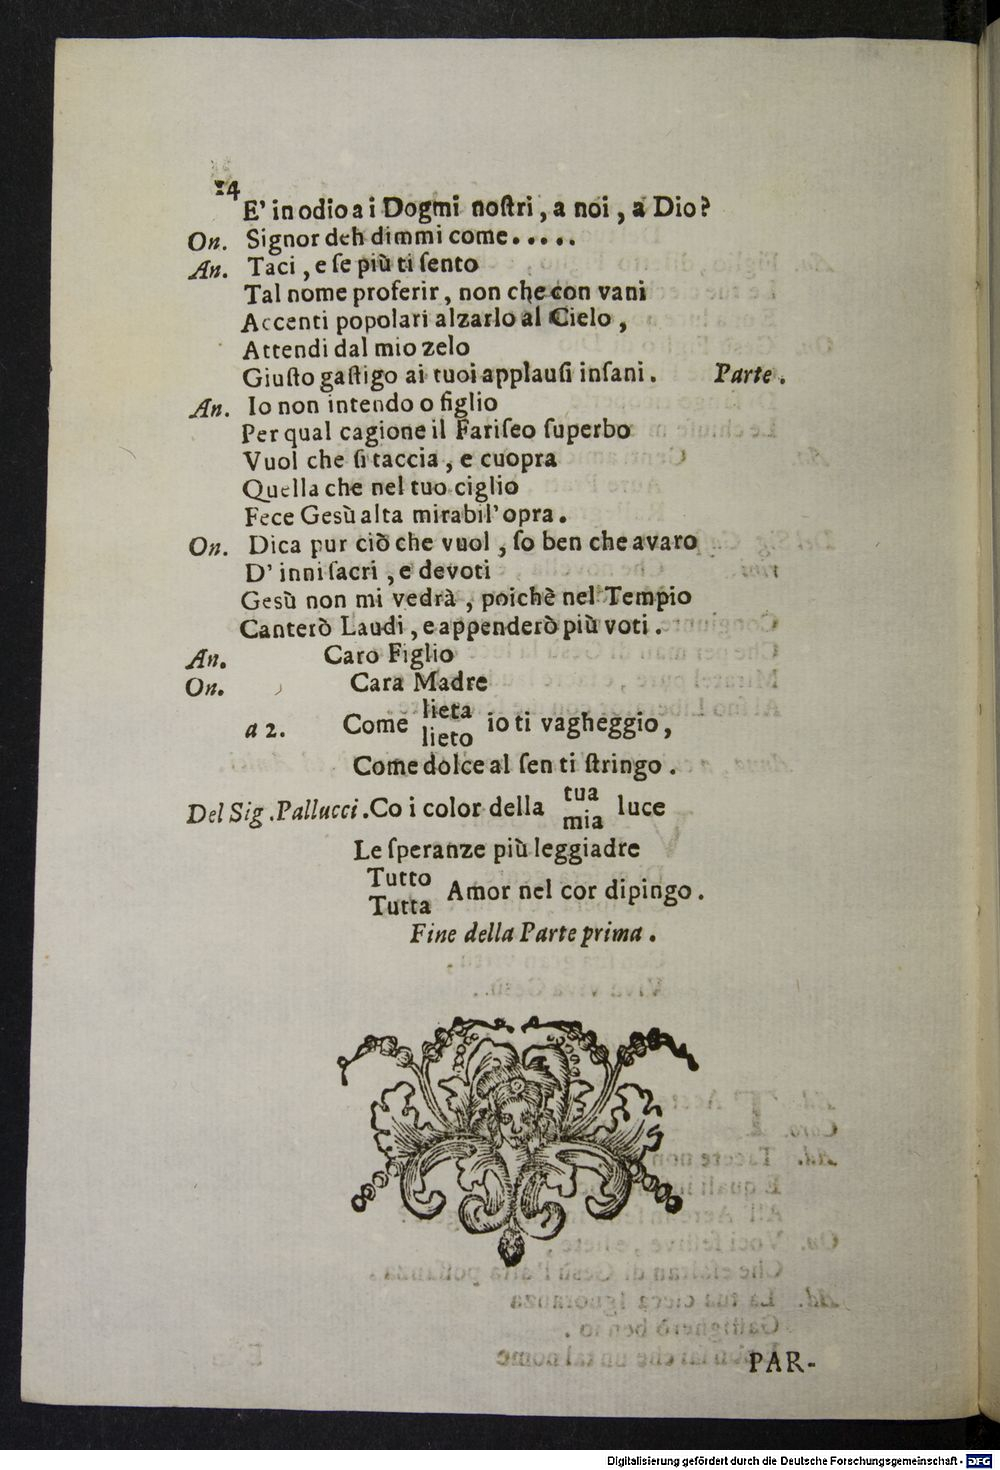 14
E' in odio a i Dogmi noſtri, a noi, a Dio?
On. Signor deh dimmi come.....
An. Taci, e ſe più ti ſento
Tal nome proferir, non che con vani
Accenti popolari alzarlo al Cielo,
Attendi dal mio zelo
Giuſto gaſtigo ai tuoi applauſi inſani. Parte.
An. Io non intendo o figlio
Per qual cagione il Fariſeo ſuperbo
Vuol che ſi taccia, e cuopra
Quella che nel tuo ciglio
Fece Gesù alta mirabil' opra.
On. Dica pur ciò che vuol, ſo ben che avaro
D' inni ſacri, e devoti
Gesù non mi vedrà, poichè nel Tempio
Canterò Laudi, e appenderò più voti.
An. Caro Figlio
On. Cara Madre
lieta
a 2. Come io ti vagheggio,
lieto
Come dolce al ſen ti ſtringo.
tua
Del Sig. Pallucci. Co i color della luce
mia
Le ſperanze più leggiadre
Tutto
Amor nel cor dipingo.
Tutta
Fine della Parte prima.
PAR-
Digitalisierung gefördert durch die Deutsche Forschungsgemeinschaft - DFG